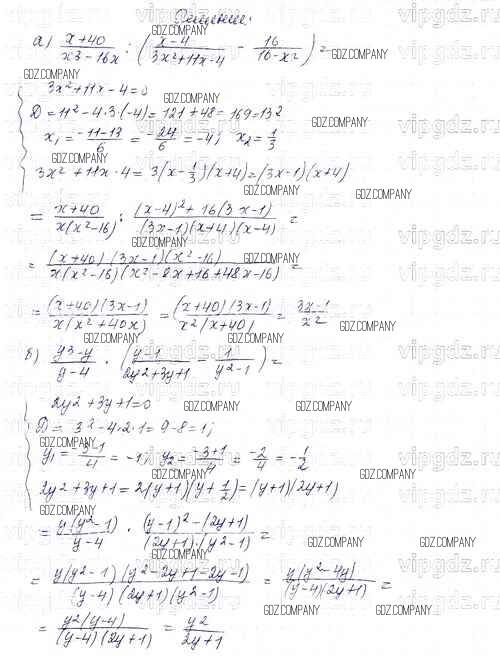 Решение.
а) (x+40)/(x3-16x) : ((x-4)/(3x²+11x-4) - 16/(16-x²)) =
3x²+11x-4=0
D=11²-4·3·(-4)=121+48=169=13²
x₁ = (-11-13)/6 = -24/6 = -4; x₂ = 1/3
3x²+11x-4 = 3(x-1/3)(x+4)=(3x-1)(x+4)
= (x+40)/(x(x²-16)) : ((x-4)²+16(3x-1))/((3x-1)(x+4)(x-4)) =
= ((x+40)(3x-1)(x²-16))/(x(x²-16)(x²-8x+16+48x-16)) =
= ((x+40)(3x-1))/(x(x²+40x)) = ((x+40)(3x-1))/(x²(x+40)) = (3x-1)/x²
б) (y3-y)/(y-4) · ((y-1)/(2y2+3y+1) - 1/(y²-1)) =
2y²+3y+1=0
D= 3²-4·2·1=9-8=1;
y₁ = (-3-1)/4 = -1; y₂ = (-3+1)/4 = -2/4 = -1/2
2y²+3y+1=2(y+1)(y+1/2)=(y+1)(2y+1)
= (y(y²-1))/(y-4) · ((y-1)²-(2y+1))/((2y+1)·(y²-1)) =
= (y(y²-1)(y²-2y+1-2y-1))/((y-4)(2y+1)(y²-1)) = (y(y²-4y))/((y-4)(2y+1)) =
= (y²(y-4))/((y-4)(2y+1)) = y²/(2y+1)
GDZ.COMPANY
vipgdz.ru